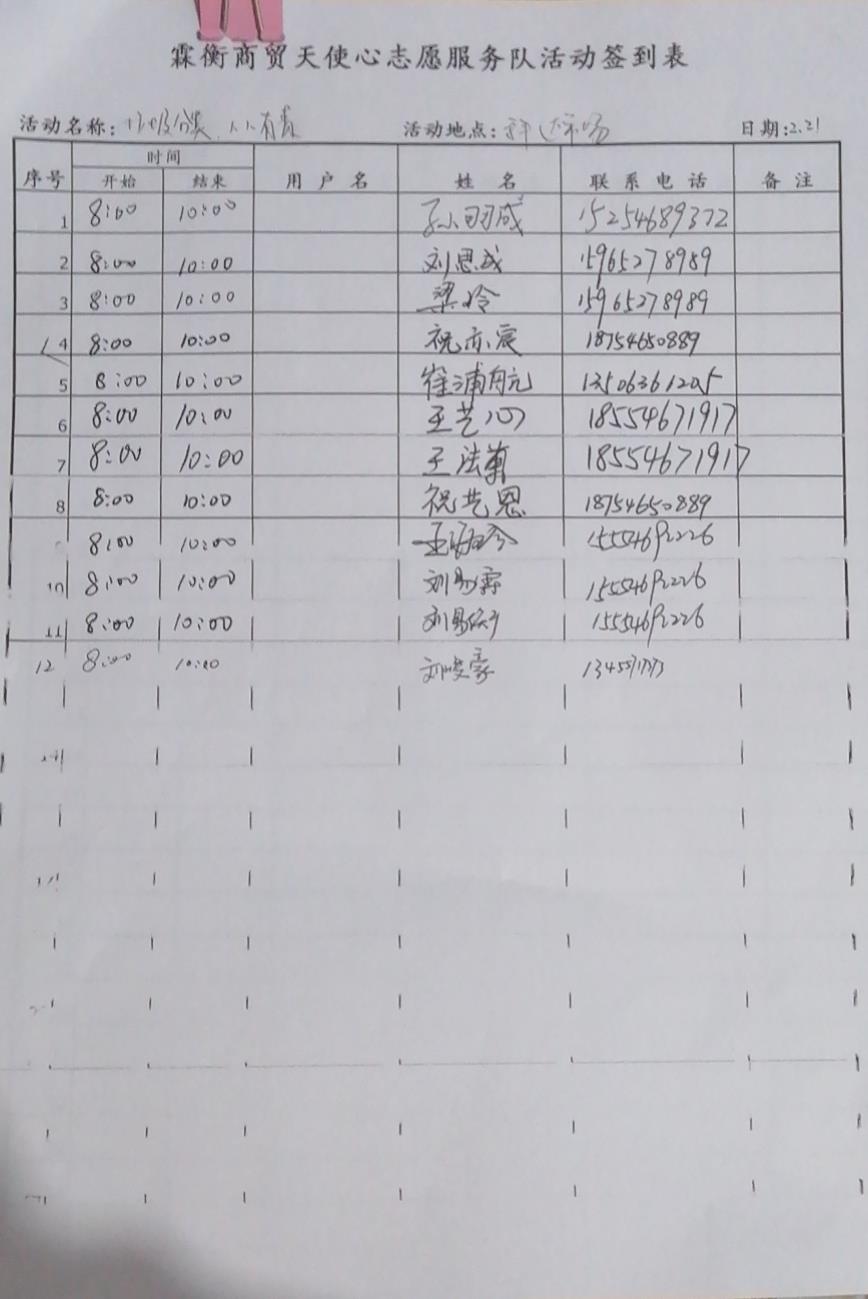 霖衡商贸天使心志愿服务队活动签到表
活动名称：垃圾分类，人人有责 活动地点： 日期：2.21
序号 时间 用户名 姓名 联系电话 备注
开始 结束
1 8:00 10:00 孙羽成 15254689372
2 8:00 10:00 刘思成 15965278989
3 8:00 10:00 梁玲 15965278989
4 8:00 10:00 祝亦宸 18754650889
5 8:00 10:00 崔浦航 13506361205
6 8:00 10:00 王艺心 18554671917
7 8:00 10:00 王法菊 18554671917
8 8:00 10:00 祝艺恩 18754650889
8:00 10:00 15554692226
10 8:00 10:00 刘易霖 15554692226
11 8:00 10:00 刘易 15554692226
12 8:00 10:00 刘峻豪